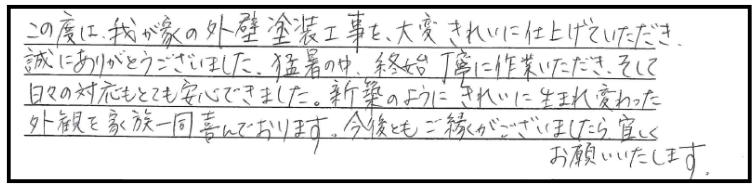 この度は、我が家の外壁塗装工事を、大変きれいに仕上げていただき、
誠にありがとうございました。猛暑の中、終始丁寧に作業いただき、そして
日々の対応もとても安心できました。新築のようにきれいに生まれ変わった
外観を家族一同喜んでおります。今後ともご縁がございましたら宜しく
お願いいたします。